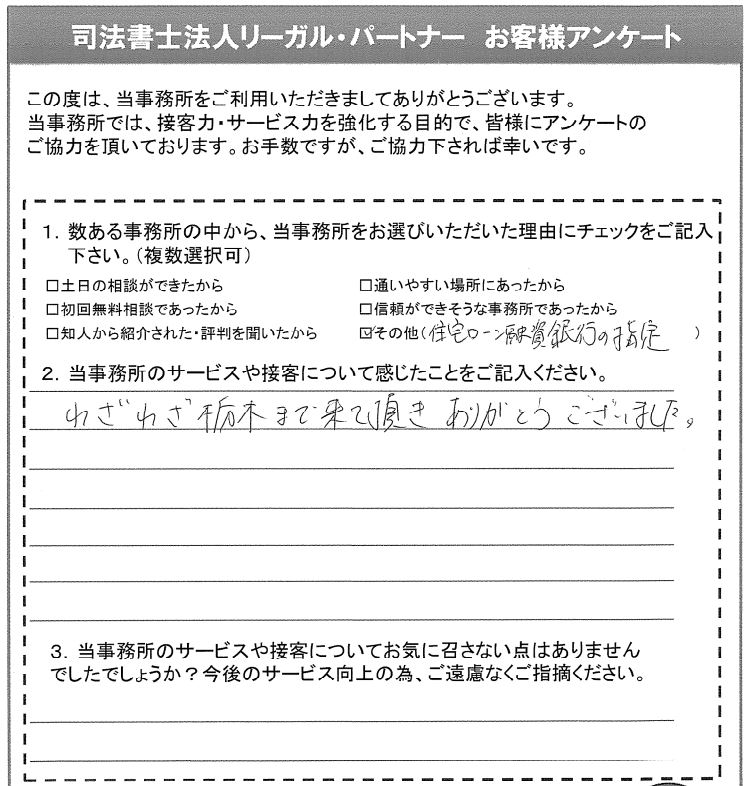 司法書士法人リーガル・パートナー お客様アンケート
この度は、当事務所をご利用いただきましてありがとうございます。
当事務所では、接客力・サービス力を強化する目的で、皆様にアンケートの
ご協力を頂いております。お手数ですが、ご協力下されば幸いです。
1. 数ある事務所の中から、当事務所をお選びいただいた理由にチェックをご記入
下さい。(複数選択可)
□土日の相談ができたから □通いやすい場所にあったから
□初回無料相談であったから □信頼ができそうな事務所であったから
□知人から紹介された・評判を聞いたから ☑その他(住宅ローン融資銀行の指定)
2. 当事務所のサービスや接客について感じたことをご記入ください。
わざわざ栃木まで来て頂きありがとうございました。
3. 当事務所のサービスや接客についてお気に召さない点はありません
でしたでしょうか?今後のサービス向上の為、ご遠慮なくご指摘ください。